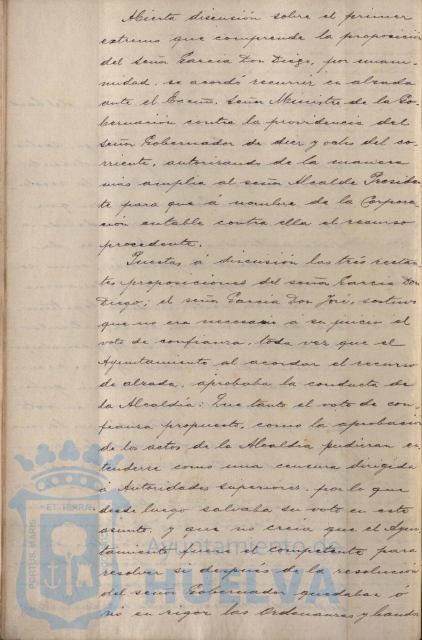 Abierta discusión sobre el primer
extremo que comprende la proposición
del señor García Don Diego, por unani-
midad, se acordó recurrir en alzada
ante el Excmo. Señor Ministro de la Go-
bernación contra la providencia del
señor Gobernador de diez y ocho del co-
rriente, autorizando de la manera
mas amplia al señor Alcalde Presiden
te para que á nombre de la Corpora-
ción entable contra ella el recurso
procedente.
Puestas á discusión las tres restan-
tes proposiciones del señor García Don
Diego; el señor García Don José, sostuvo
que no era necesario á su juicio el
voto de confianza, toda vez que el
Ayuntamiento al acordar el recurso
de alzada, aprobaba la conducta de
la Alcaldía: Que tanto el voto de con-
fianza propuesto, como la aprobación
de los actos de la Alcaldía pudieran en-
tenderse como una censura dirigida
á Autoridades superiores, por lo que
desde luego salvaba su voto en este
asunto, y que no creía que el Ayun-
tamiento fuese el competente para
resolver si después de la resolución
del señor Gobernador quedaban ó
nó en vigor las Ordenanzas y bandos
PORTUS MARIS ET TERRAE
Ayuntamiento de
HUELVA